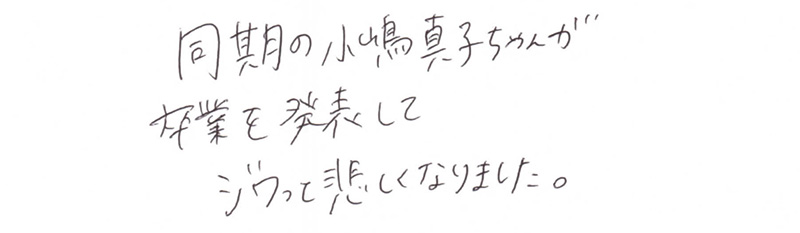 同期の小嶋真子ちゃんが
卒業を発表して
ジワっと悲しくなりました。